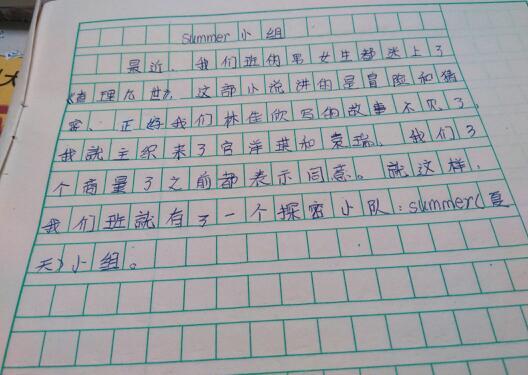 summer小组
最近、我们班的男女生都迷上了
《查理九世》,这部小说讲的是冒险和猜
密、正好我们林佳欣写的故事不见了,
我就主织来了宫洋英和袁瑞、我们3
个商量了之前都表示同意。就这样,
我们班就有了一个探密小队:summer(夏
天)小组。